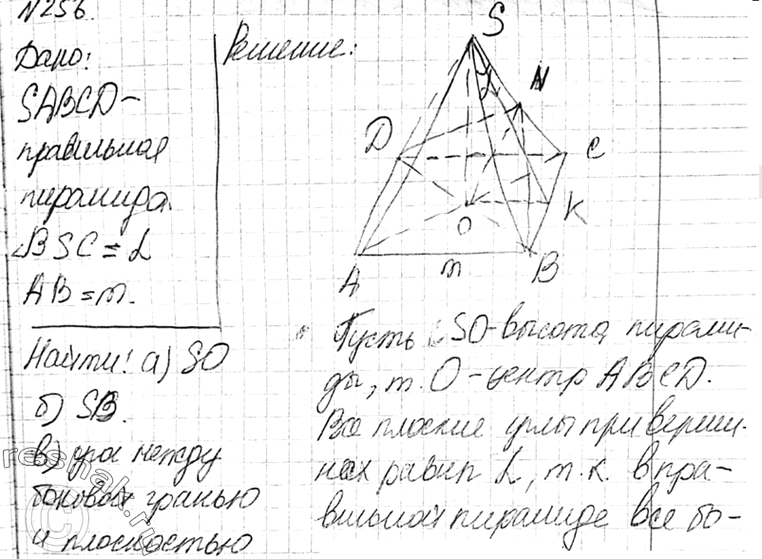 N256
Дано:
SABCD –
правильная
пирамида.
∠BSC = α
AB = m.
Найти: а) SO
б) SB.
в) угол между
боковой гранью
и плоскостью
Решение:
S
N
α
D
C
O
K
A
m
B
Пусть SO – высота пирами-
ды, т. O – центр ABCD.
Все плоские углы при верши-
нах равны α, т.к. в пра-
вильной пирамиде все бо-